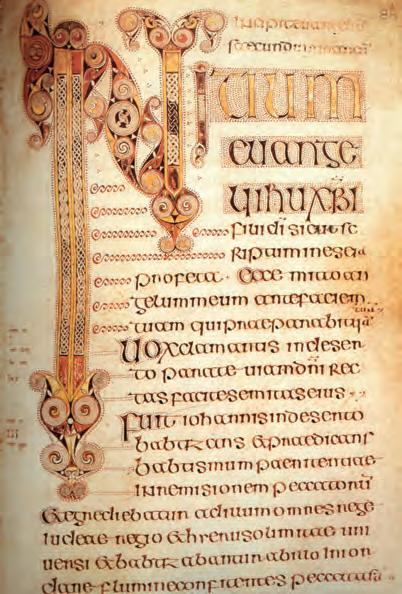 INITIUM
euange
lii ihu xpi
filii di sicut sc
riptum in esaia
profeta · Ecce mitto an
gelum meum ante faciem
tuam qui praeparabit uiā
Uox clamantis in deser
to parate uiam dni rec
tas facite semitas eius
Fuit iohannis in deserto
babtizans & praedicans
babtismum paenitentiae
in remisionem peccatorū
& egrediebatur ad illum omnes rege
iudeae regio & hierusolimitae uni
uersi & babtizabantur ab illo in ior
dane flumine confitentes peccata